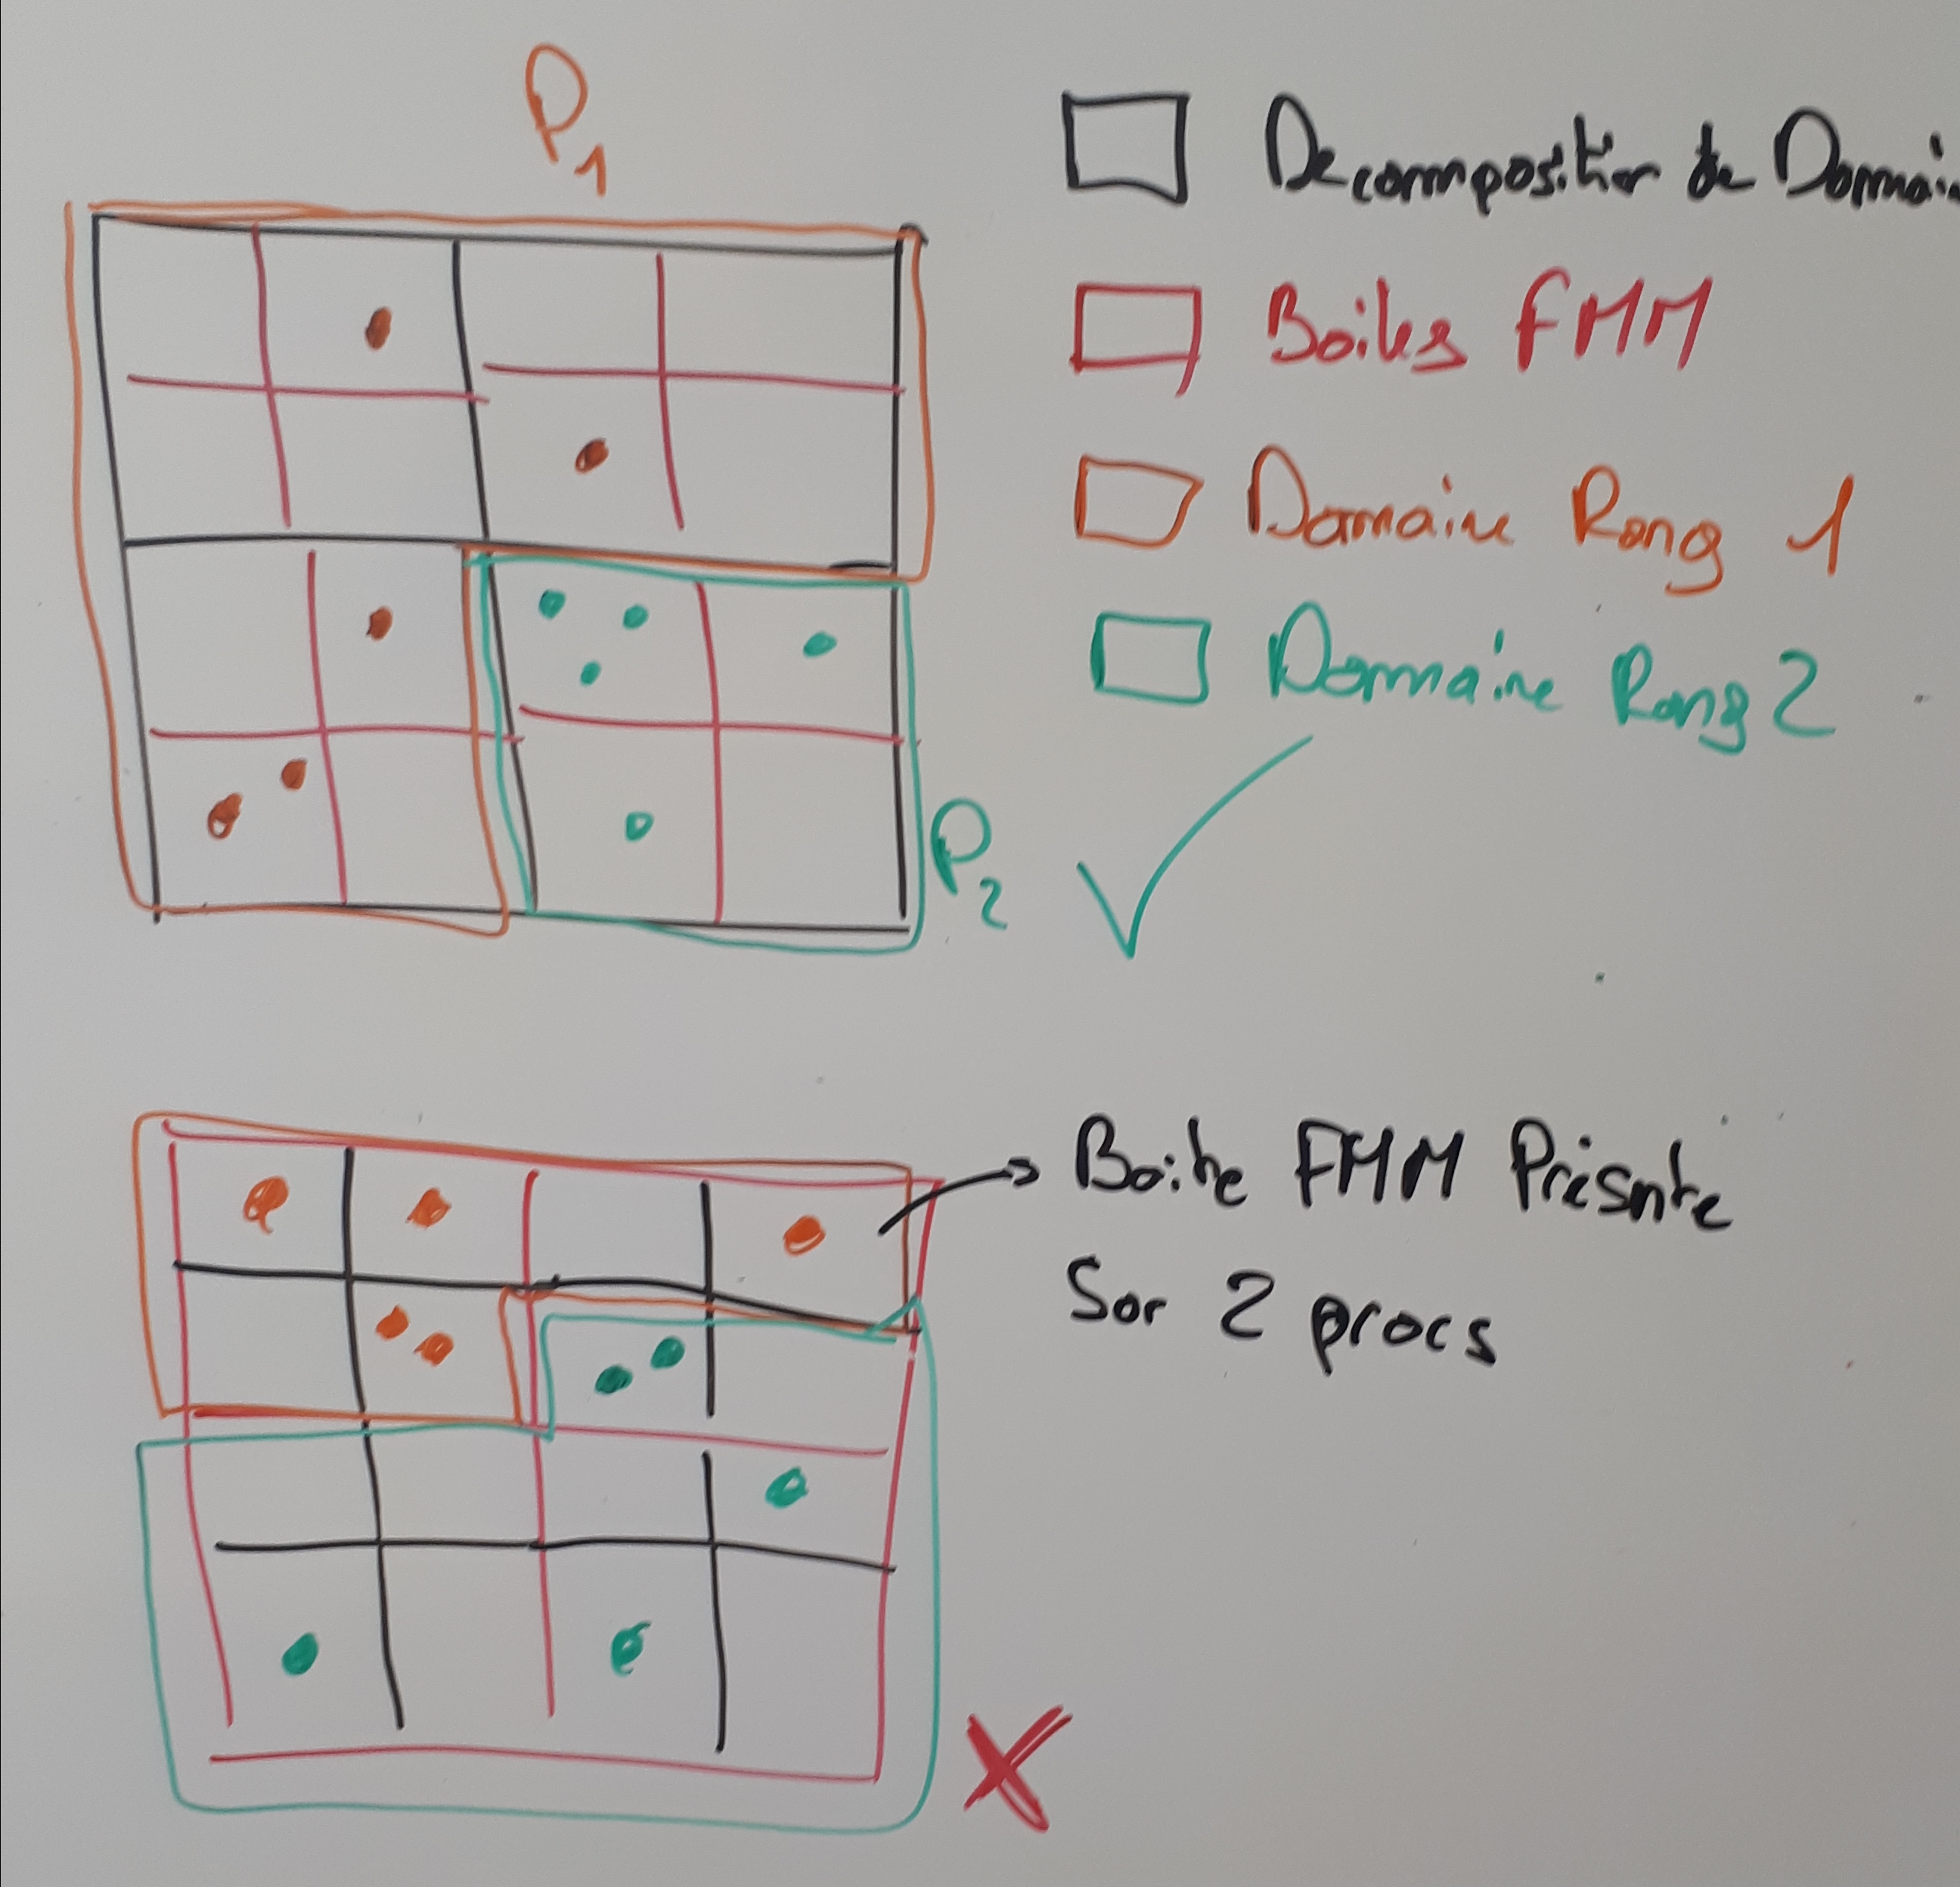 P1
Decomposition de Domain
Boites FMM
Domaine Rang 1
Domaine Rang 2
P2
Boite FMM Présente
Sur 2 procs